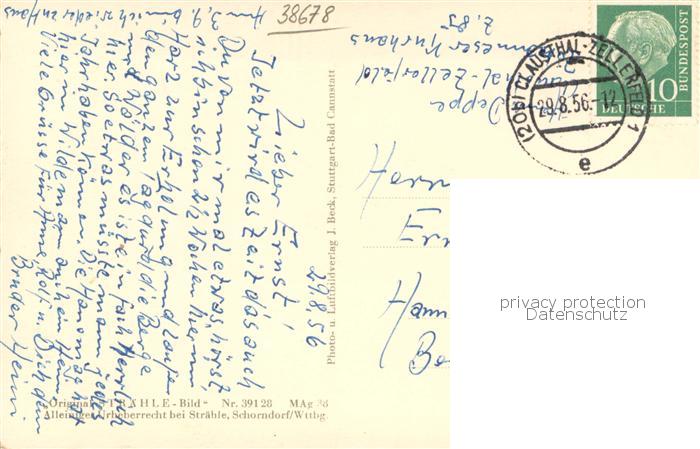 38678
Am 3.9. bin ich wieder zu Haus
29.8.56
Lieber Ernst,
Jetzt wird es Zeit das auch
Du von mir mal etwas hörst
ich bin schon 2½ Wochen hier im
Harz zur Erholung und laufe
den ganzen Tag durch die Berge
und Wälder es ist einfach herrlich
hier so etwas müsste man jedes
Jahr haben können. Die Hanomag hat
hier in Wildemann auch ein Heim
Viele Grüsse für Anne, Rolf u. Dich dein
Bruder Heini
Deppe
Clausthal-Zellerfeld
Z. 85
Herrn
Ern
Hann
Be
(20b) CLAUSTHAL-ZELLERFELD 1
29.8.56.-12
e
10
DEUTSCHE
BUNDESPOST
Photo- u. Luftbildverlag J. Beck, Stuttgart-Bad Cannstatt
"Original STRÄHLE-Bild" Nr. 39128 MAg 38
Alleiniges Urheberrecht bei Strähle, Schorndorf/Wttbg.
privacy protection
Datenschutz